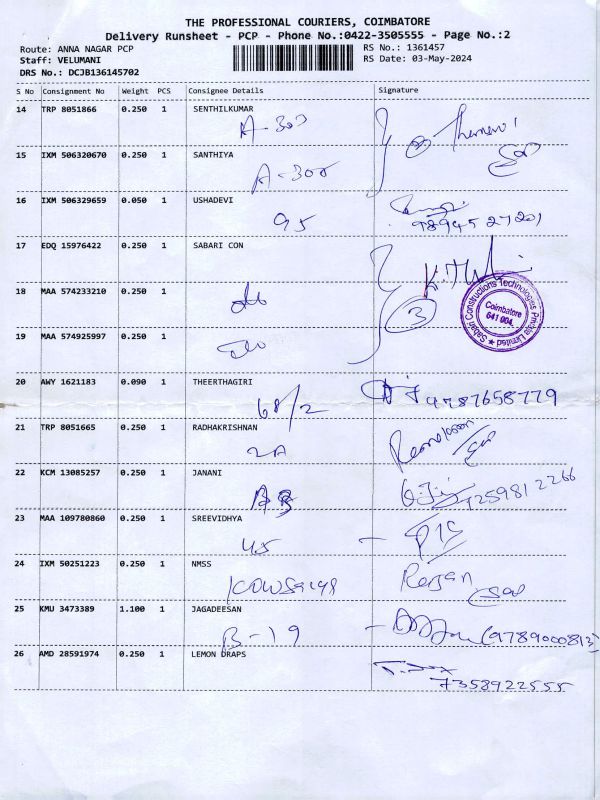 THE PROFESSIONAL COURIERS, COIMBATORE
Delivery Runsheet - PCP - Phone No.:0422-3505555 - Page No.:2
Route: ANNA NAGAR PCP
RS No.: 1361457
Staff: VELUMANI
RS Date: 03-May-2024
DRS No.: DCJB136145702
S No Consignment No Weight PCS Consignee Details Signature
14 TRP 8051866 0.250 1 SENTHILKUMAR
A-300
15 IXM 506320670 0.250 1 SANTHIYA
A-300
16 IXM 506329659 0.050 1 USHADEVI
95 9894527201
17 EDQ 15976422 0.250 1 SABARI CON
18 MAA 574233210 0.250 1
do
3
Sabari Constructions Technologies Private Limited
Coimbatore
641 004.
19 MAA 574925997 0.250 1
do
20 AWY 1621183 0.090 1 THEERTHAGIRI
68/2 9787658779
21 TRP 8051665 0.250 1 RADHAKRISHNAN
2A
22 KCM 13085257 0.250 1 JANANI
7259812266
23 MAA 109780860 0.250 1 SREEVIDHYA
45
24 IXM 50251223 0.250 1 NMSS
25 KMU 3473389 1.100 1 JAGADEESAN
B-19 (9789000813)
26 AMD 28591974 0.250 1 LEMON DRAPS
7358922555